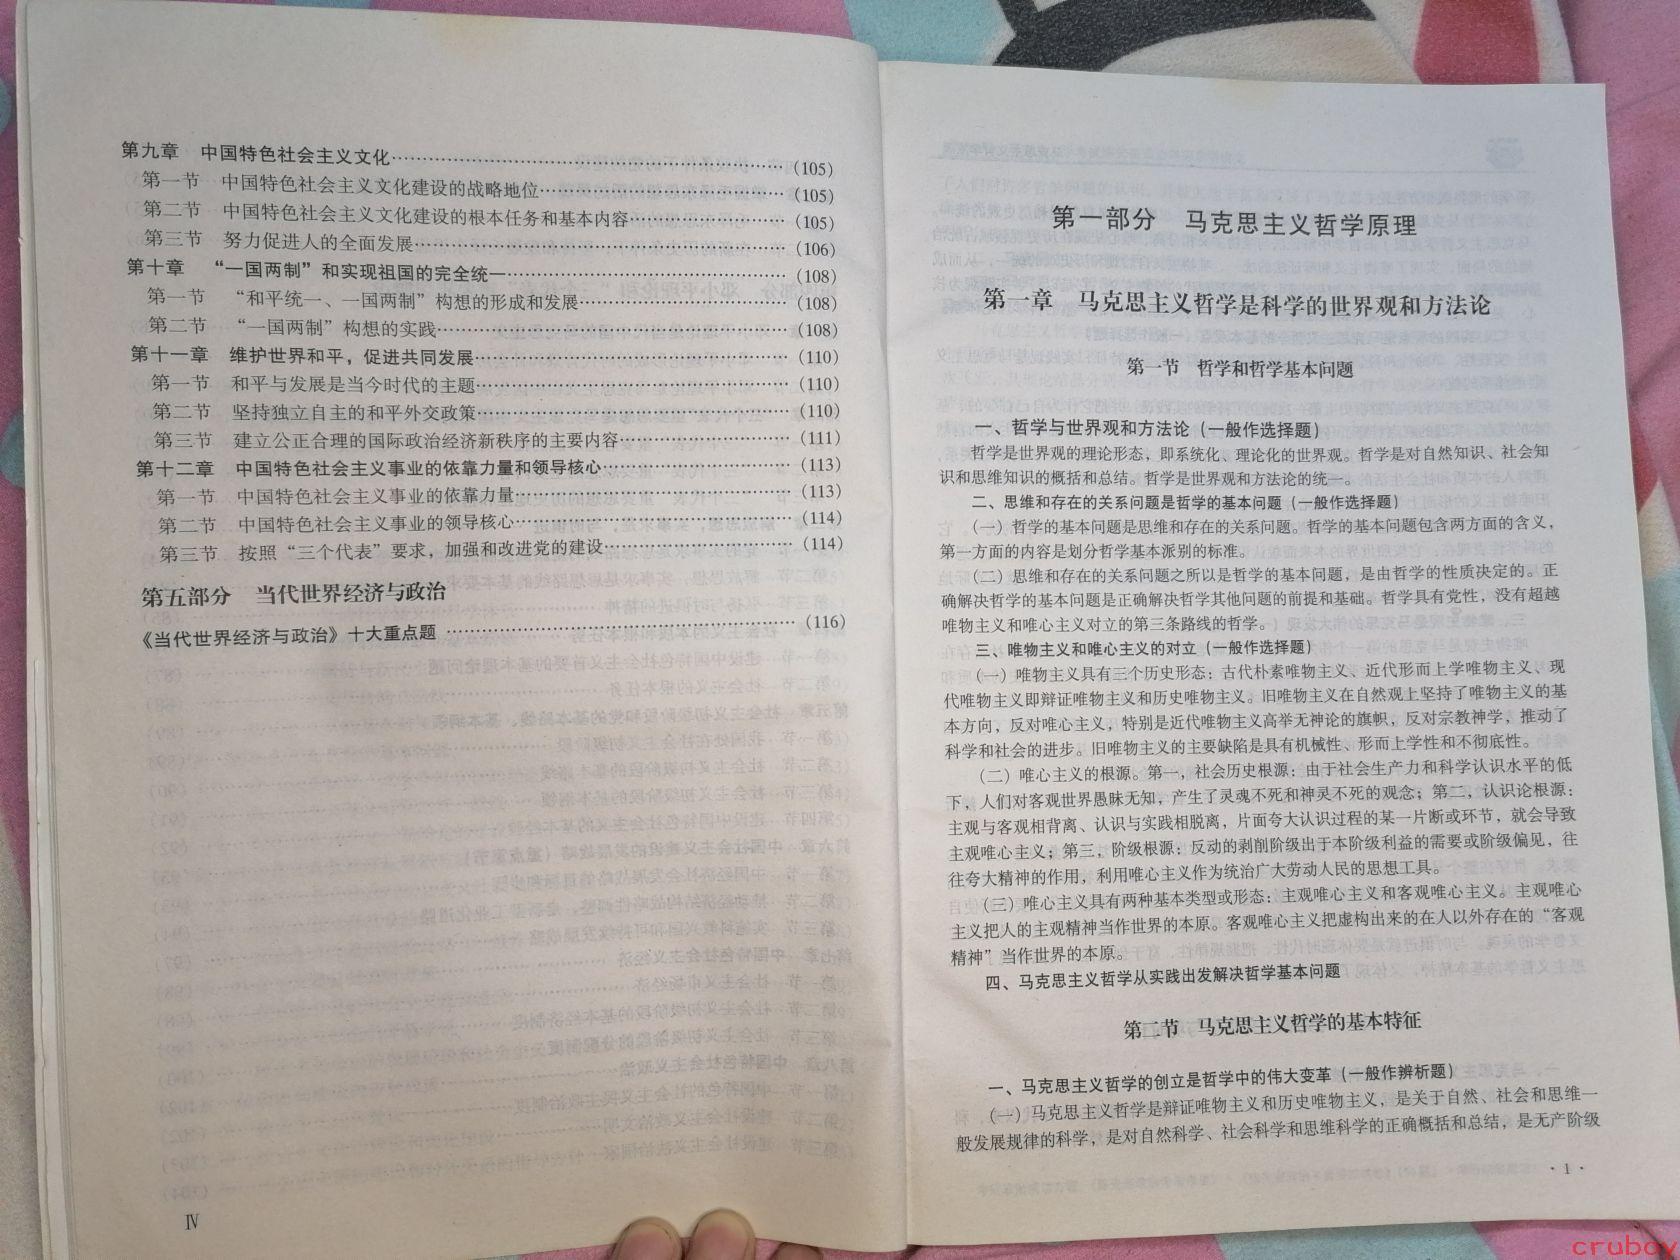 第九章 中国特色社会主义文化……(105)
第一节 中国特色社会主义文化建设的战略地位……(105)
第二节 中国特色社会主义文化建设的根本任务和基本内容……(105)
第三节 努力促进人的全面发展……(106)
第十章 “一国两制”和实现祖国的完全统一……(108)
第一节 “和平统一、一国两制”构想的形成和发展……(108)
第二节 “一国两制”构想的实践……(108)
第十一章 维护世界和平，促进共同发展……(110)
第一节 和平与发展是当今时代的主题……(110)
第二节 坚持独立自主的和平外交政策……(110)
第三节 建立公正合理的国际政治经济新秩序的主要内容……(111)
第十二章 中国特色社会主义事业的依靠力量和领导核心……(113)
第一节 中国特色社会主义事业的依靠力量……(113)
第二节 中国特色社会主义事业的领导核心……(114)
第三节 按照“三个代表”要求，加强和改进党的建设……(114)
第五部分 当代世界经济与政治
《当代世界经济与政治》十大重点题……(116)
Ⅳ
第一部分 马克思主义哲学原理
第一章 马克思主义哲学是科学的世界观和方法论
第一节 哲学和哲学基本问题
一、哲学与世界观和方法论（一般作选择题）
哲学是世界观的理论形态，即系统化、理论化的世界观。哲学是对自然知识、社会知
识和思维知识的概括和总结。哲学是世界观和方法论的统一。
二、思维和存在的关系问题是哲学的基本问题（一般作选择题）
（一）哲学的基本问题是思维和存在的关系问题。哲学的基本问题包含两方面的含义，
第一方面的内容是划分哲学基本派别的标准。
（二）思维和存在的关系问题之所以是哲学的基本问题，是由哲学的性质决定的。正
确解决哲学的基本问题是正确解决哲学其他问题的前提和基础。哲学具有党性，没有超越
唯物主义和唯心主义对立的第三条路线的哲学。
三、唯物主义和唯心主义的对立（一般作选择题）
（一）唯物主义具有三个历史形态：古代朴素唯物主义、近代形而上学唯物主义、现
代唯物主义即辩证唯物主义和历史唯物主义。旧唯物主义在自然观上坚持了唯物主义的基
本方向，反对唯心主义，特别是近代唯物主义高举无神论的旗帜，反对宗教神学，推动了
科学和社会的进步。旧唯物主义的主要缺陷是具有机械性、形而上学性和不彻底性。
（二）唯心主义的根源。第一，社会历史根源：由于社会生产力和科学认识水平的低
下，人们对客观世界愚昧无知，产生了灵魂不死和神灵不死的观念；第二，认识论根源：
主观与客观相背离、认识与实践相脱离，片面夸大认识过程的某一片断或环节，就会导致
主观唯心主义；第三，阶级根源：反动的剥削阶级出于本阶级利益的需要或阶级偏见，往
往夸大精神的作用，利用唯心主义作为统治广大劳动人民的思想工具。
（三）唯心主义具有两种基本类型或形态：主观唯心主义和客观唯心主义。主观唯心
主义把人的主观精神当作世界的本原。客观唯心主义把虚构出来的在人以外存在的“客观
精神”当作世界的本原。
四、马克思主义哲学从实践出发解决哲学基本问题
第二节 马克思主义哲学的基本特征
一、马克思主义哲学的创立是哲学中的伟大变革（一般作辨析题）
（一）马克思主义哲学是辩证唯物主义和历史唯物主义，是关于自然、社会和思维一
般发展规律的科学，是对自然科学、社会科学和思维科学的正确概括和总结，是无产阶级
· 1 ·
cruboy